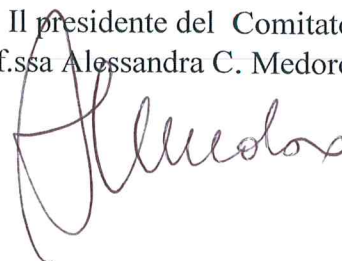 Il presidente del Comitato
f.ssa Alessandra C. Medoro